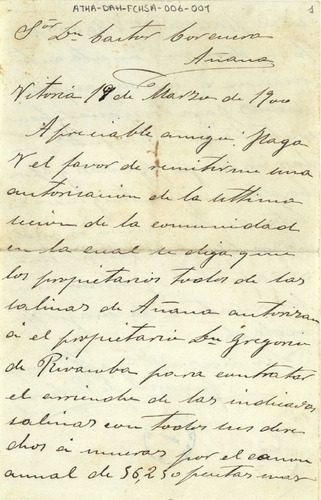 ATHA-DAH-FCHSA-006-001
1
Sor Dn Castor Corcuera
Añana
Vitoria 19 de Marzo de 1900
Apreciable amigo: Haga
V el favor de remitirme una
autorizacion de la ultima
reunion de la comunidad
en la cual se diga que
los propietarios todos de las
salinas de Añana autorizan
á el propietario Dn Gregorio
de Rivamba para contratar
el arriendo de las indicadas
salinas con todos sus dere
chos á mueras por el canon
annal de 36,250 pesetas mas